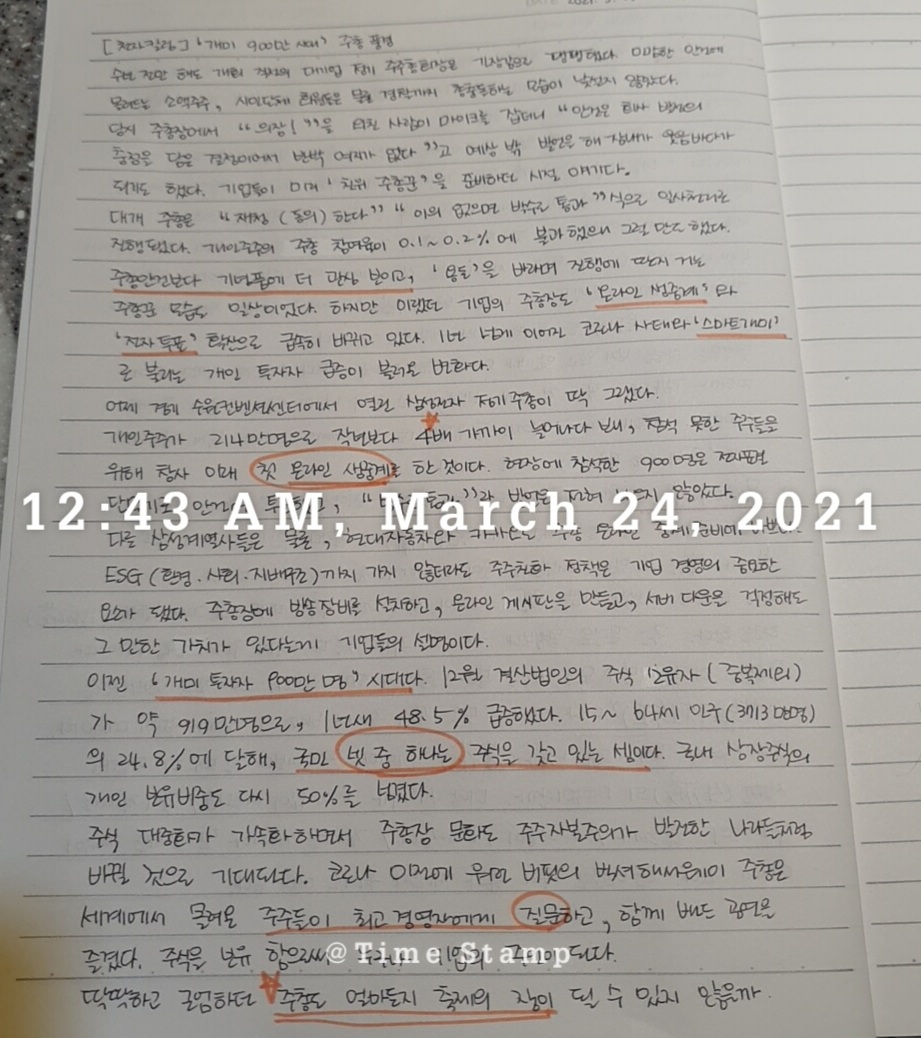 [천자칼럼] '개미 900만 시대' 주총 풍경
수년 전만 해도 개최 대기업 정기 주주총회장은 긴장감으로 팽팽했다. 안건에
소액주주, 시민단체 회원들은 몸을 충돌하는 모습이 낯설지 않았다.
당시 주총장에서 "의장!"을 외친 사람이 마이크를 잡더니 "안건은 회사 발전의
충정을 담은 결정이어서 반박 여지가 없다"고 예상 밖 발언을 해 장내가 웃음바다가
되기도 했다. 기업들이 미리 '친위 주총꾼'을 준비하던 시절 얘기다.
대개 주총은 "재청(동의)한다" "이의 없으면 박수로 통과"식으로 일사천리로
진행됐다. 개인주주의 주총 참여율이 0.1~0.2%에 불과했으니 그럴 만도 했다.
주총안건보다 기념품에 더 관심 보이고, '용돈'을 바라며 진행에 딴지 거는
주총꾼 모습도 일상이었다. 하지만 이랬던 기업의 주총장도 '온라인 생중계'와
'전자투표' 확산으로 급속히 바뀌고 있다. 1년 넘게 이어진 코로나 사태와 '스마트개미'
로 불리는 개인 투자자 급증이 불러온 변화다.
어제 경기 수원컨벤션센터에서 열린 삼성전자 정기주총이 딱 그랬다.
개인주주가 214만명으로 작년보다 4배 가까이 늘어나다 보니, 참석 못한 주주들을
위해 창사 이래 첫 온라인 생중계를 한 것이다. 현장에 참석한 900명은 전자표결
12:43 AM, March 24, 2021
다른 삼성계열사들은 물론, 현대자동차와 주총 온라인 중계
ESG(환경·사회·지배구조)까지 가지 않더라도 주주친화 정책은 기업 경영의 중요한
요소가 됐다. 주총장에 방송장비를 설치하고, 온라인 게시판을 만들고, 서버 다운을 걱정해도
그 만한 가치가 있다는게 기업들의 설명이다.
이젠 '개미 투자자 900만 명' 시대다. 12월 결산법인의 주식 소유자(중복제외)
가 약 919만명으로, 1년새 48.5% 급증했다. 15~64세 인구(3713만명)
의 24.8%에 달해, 국민 넷 중 하나는 주식을 갖고 있는 셈이다. 국내 상장주식의
개인 보유비중도 다시 50%를 넘겼다.
주식 대중화가 가속화하면서 주총장 문화도 주주자본주의가 발전한 나라들처럼
바뀔 것으로 기대된다. 코로나 이전에 워런 버핏의 버셔해서웨이 주총은
세계에서 몰려온 주주들이 최고경영자에게 질문하고, 함께 밴드 공연을
즐겼다. 주식을 보유 함으로써 기업의 된다.
@Time Stamp
딱딱하고 근엄하던 주총도 얼마든지 축제의 장이 될 수 있지 않을까.